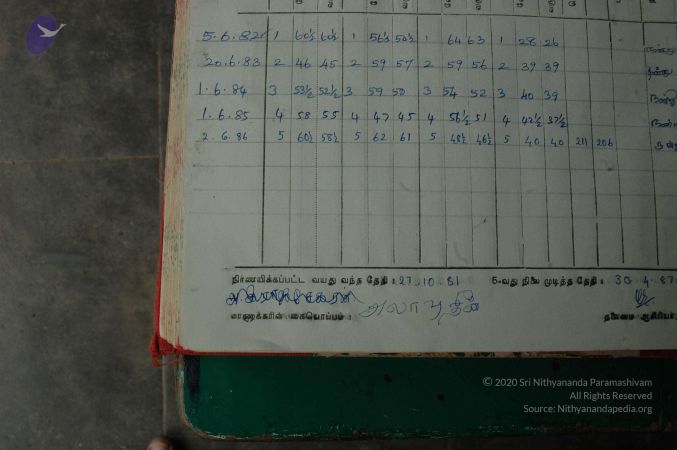 5.6.82 1 60½ 60½ 1 56½ 50½ 1 64 63 1 28 26
20.6.83 2 46 45 2 59 57 2 59 56 2 39 39
1.6.84 3 53½ 52½ 3 59 50 3 54 52 3 40 39
1.6.85 4 58 55 4 47 45 4 56½ 51 4 42½ 37½
2.6.86 5 60½ 58½ 5 62 61 5 48½ 46½ 5 40 40 211 206
நிர்ணயிக்கப்பட்ட வயது வந்த தேதி : 27.10.81 5-வது நிலை முடித்த தேதி : 30.4.87
அலாவுதீன்
மாணாக்கரின் கையொப்பம் : தலைமை ஆசிரியர்
© 2020 Sri Nithyananda Paramashivam
All Rights Reserved
Source: Nithyanandapedia.org